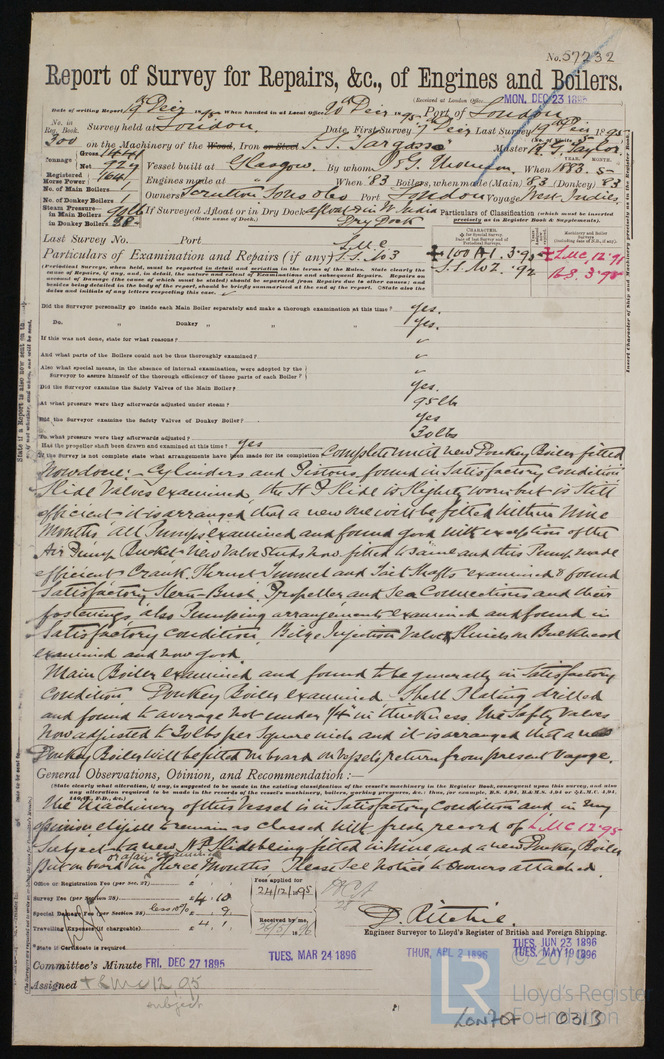 No. 57232
Report of Survey for Repairs, &c., of Engines and Boilers.
(Received at London Office MON. DEC 23 1895
Date of writing Report 19th Decr 1895 When handed in at Local Office 20th Decr 1895 Port of London
No. in Reg. Book. 300 Survey held at London. Date, First Survey 7th Decr Last Survey 19th Decr 1895
(No. of Visits
on the Machinery of the Wood, Iron or Steel S.S. Sargasso Master R. G. Taylor.
Tonnage Gross 1444 Net 929 Vessel built at Glasgow. By whom When 1883. 5
YEAR. MONTH.
Registered Horse Power 164 Engines made at When '83 Boilers, when made (Main) 83 (Donkey) 83
No. of Main Boilers 1
No. of Donkey Boilers 1 Owners Scrutton Sons & Co Port London Voyage West Indies
Steam Pressure in Main Boilers 90lb in Donkey Boilers 38 If Surveyed Afloat or in Dry Dock afloat & in W. India Dry Dock
(State name of Dock.)
Particulars of Classification (which must be inserted precisely as in Register Book & Supplements).
Last Survey No. Port
Particulars of Examination and Repairs (if any) L.M.C. S.S. No 3
CHARACTER.
+ 100 A1. 3.95
S.S. No 2. '92
+ L.M.C, 12.91
B.S. 3.95
(Periodical Surveys, when held, must be reported in detail and seriatim in the terms of the Rules. State clearly the
cause of Repairs, if any, and, in detail, the nature and extent of Examinations and subsequent Repairs. Repairs on
account of Damage (the cause of which must be stated) should be separated from Repairs due to other causes; and
besides being detailed in the body of the report, should be briefly summarised at the end of the report. State also the
dates and initials of any letters respecting this case.
Did the Surveyor personally go inside each Main Boiler separately and make a thorough examination at this time? Yes.
Do. Donkey " " " Yes.
If this was not done, state for what reasons? "
And what parts of the Boilers could not be thus thoroughly examined? "
Also what special means, in the absence of internal examination, were adopted by the
Surveyor to assure himself of the thorough efficiency of those parts of each Boiler? "
Did the Surveyor examine the Safety Valves of the Main Boiler? Yes.
At what pressure were they afterwards adjusted under steam? 95 lb
Did the Surveyor examine the Safety Valves of Donkey Boiler? Yes
To what pressure were they afterwards adjusted? 30 lbs
Has the propeller shaft been drawn and examined at this time? Yes
If the Survey is not complete state what arrangements have been made for its completion Complete until new Donkey Boiler fitted
Now done:- Cylinders and Pistons found in Satisfactory Condition
Slide Valves examined, the H P Slide is slightly worn but is still
efficient it is arranged that a new one will be fitted within nine
Months. All Pumps examined and found good with exception of the
Air Pump Bucket New Valve Studs now fitted to same and this Pump made
efficient Crank, Thrust Tunnel and Tail Shafts examined & found
Satisfactory Stern-Bush, Propeller and Sea Connections and their
fastenings also Pumping arrangements examined and found in
Satisfactory condition, Bilge Injection Valve & Sluices on Bulkhead
examined and now good.
Main Boiler examined and found to be generally in Satisfactory
Condition Donkey Boiler examined Shell Plating drilled
and found to average not under 1/4" in thickness. The Safty Valves
now adjusted to 30 lbs per square inch and it is arranged that a new
Donkey Boiler will be fitted on board on vessels return from present Voyage.
General Observations, Opinion, and Recommendation:—
(State clearly what alteration, if any, is suggested to be made in the existing classification of the vessel's machinery in the Register Book, consequent upon this survey, and also
any alterations required to be made in the records of the vessel's machinery, boilers, working pressures, &c.; thus, for example, B.S. 4,94, B.&M.S. 4,94 or +L.M.C. 4,94,
140 lb., F.D., &c.)
The Machinery of this Vessel is in Satisfactory Condition and in my
opinion eligible to remain as Classed with fresh record of L.M.C 12.95
Subject to a new H.P. Slide being fitted in nine and a new Donkey Boiler
or again examined
put on board in three Months. Please see notice to Owners attached
Office or Registration Fee (per Sec. 27)
Survey Fee (per Section 28) £ 4 : 10
Special Damage Fee (per Section 28) less 10% 9.
Travelling Expenses (if chargeable) 4. 1.
Fees applied for 24/12/1895
Received by me,
D. Ritchie
Engineer Surveyor to Lloyd's Register of British and Foreign Shipping.
State if Certificate is required.
Committee's Minute FRI. DEC 27 1895 TUES. MAR 24 1896 THUR. APL 2 1896 TUES. JUN 23 1896
TUES. MAY 19 1896
Assigned + LMC 12 95
subject
LR
© 2019
Lloyd's Register
Foundation
LON707 - 0313